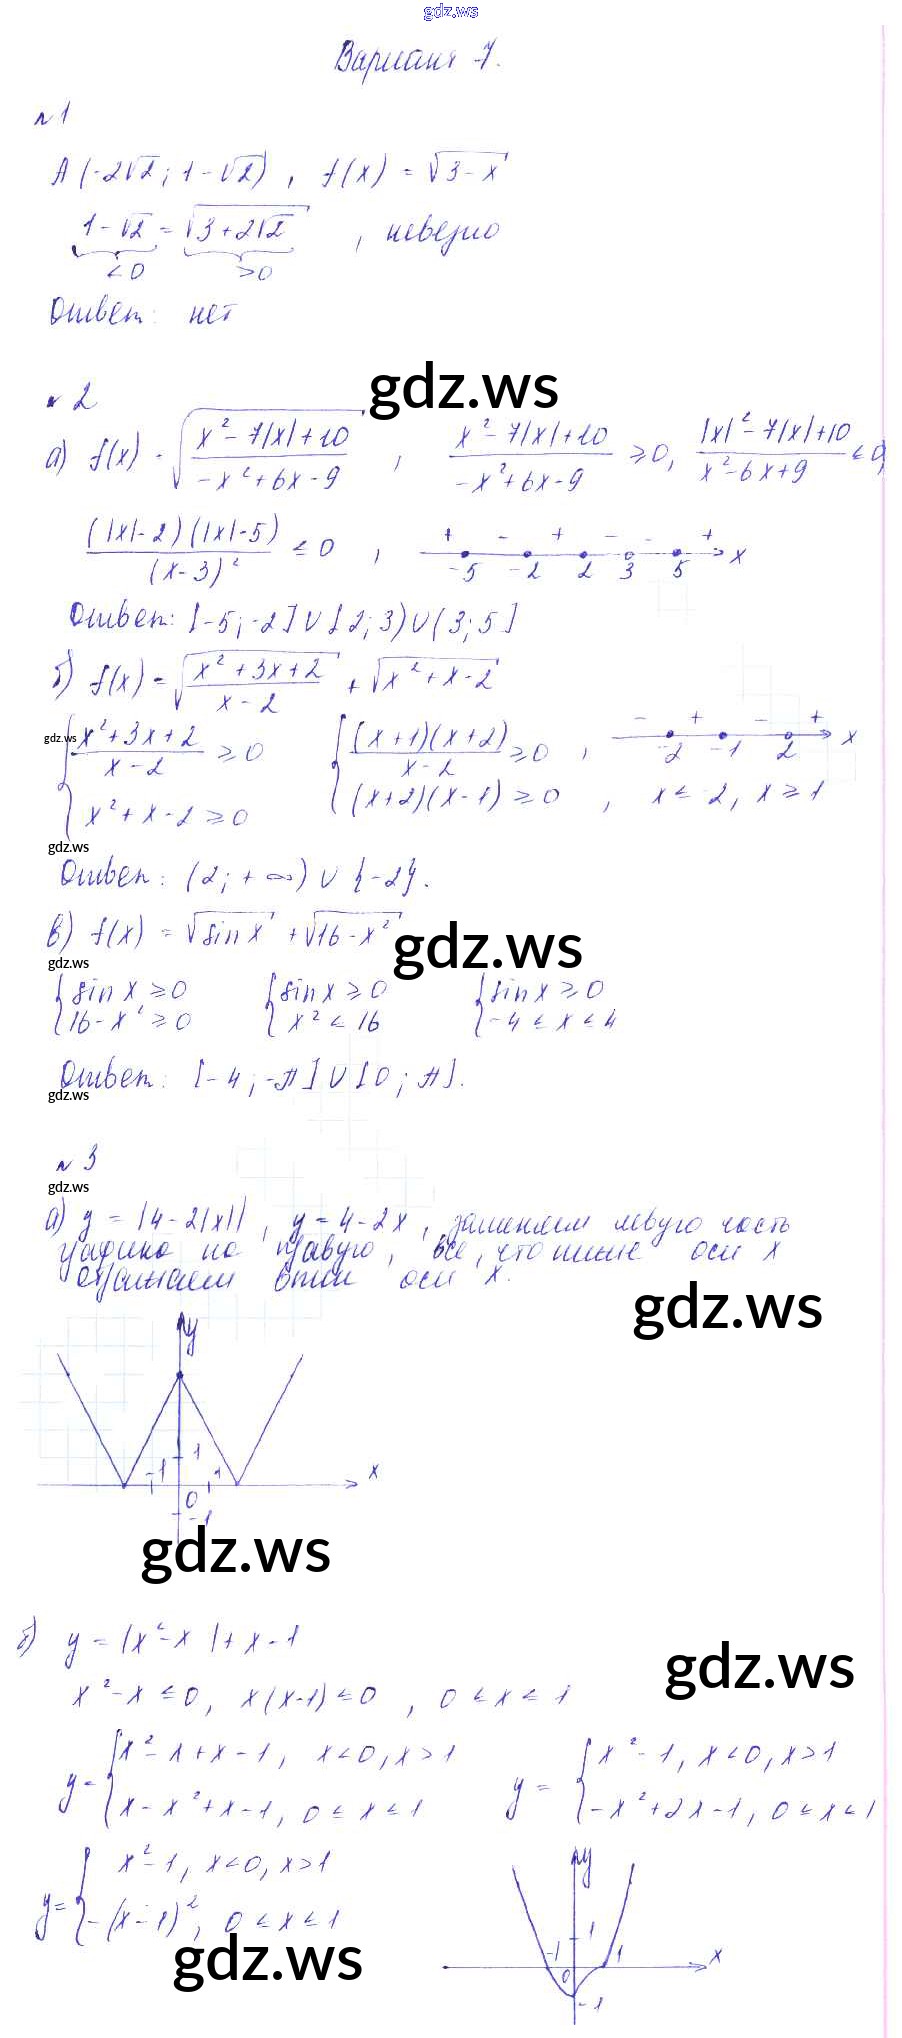 gdz.ws
Вариант 7.
№1
A(-2√2; 1-√2), f(x) = √(3-x)
1-√2 = √(3+2√2), неверно
<0 >0
Ответ: нет
№2
gdz.ws
а) f(x) = √((x²-7|x|+10)/(-x²+6x-9)), (x²-7|x|+10)/(-x²+6x-9) ≥0, (|x|²-7|x|+10)/(x²-6x+9) ≤0,
((|x|-2)(|x|-5))/(x-3)² ≤ 0, + - + - - + -5 -2 2 3 5 x
Ответ: [-5;-2]∪[2;3)∪(3;5]
б) f(x) = √((x²+3x+2)/(x-2)) + √(x²+x-2)
gdz.ws
{(x²+3x+2)/(x-2) ≥0 {((x+1)(x+2))/(x-2) ≥0, - + - + -2 -1 2 x
x²+x-2≥0 (x+2)(x-1)≥0, x≤-2, x≥1
gdz.ws
Ответ: (2;+∞)∪{-2}.
в) f(x) = √(sin x) + √(16-x²)
gdz.ws
gdz.ws
{sin x≥0 {sin x≥0 {sin x≥0
16-x²≥0 x²≤16 -4≤x≤4
Ответ: [-4;-π]∪[0;π].
gdz.ws
№3
gdz.ws
а) y = |4-2|x||, y=4-2x, заменяем левую часть
графика на правую, все, что ниже оси x
отражаем отн. оси x.
gdz.ws
y
1
-1 1 x
0
-1
gdz.ws
б) y = |x²-x|+x-1
gdz.ws
x²-x≤0, x(x-1)≤0, 0≤x≤1
y={x²-x+x-1, x<0, x>1 y={x²-1, x<0, x>1
x-x²+x-1, 0≤x≤1 -x²+2x-1, 0≤x≤1
y={x²-1, x<0, x>1
-(x-1)², 0≤x≤1
gdz.ws
y
1
-1 0 1 x
-1